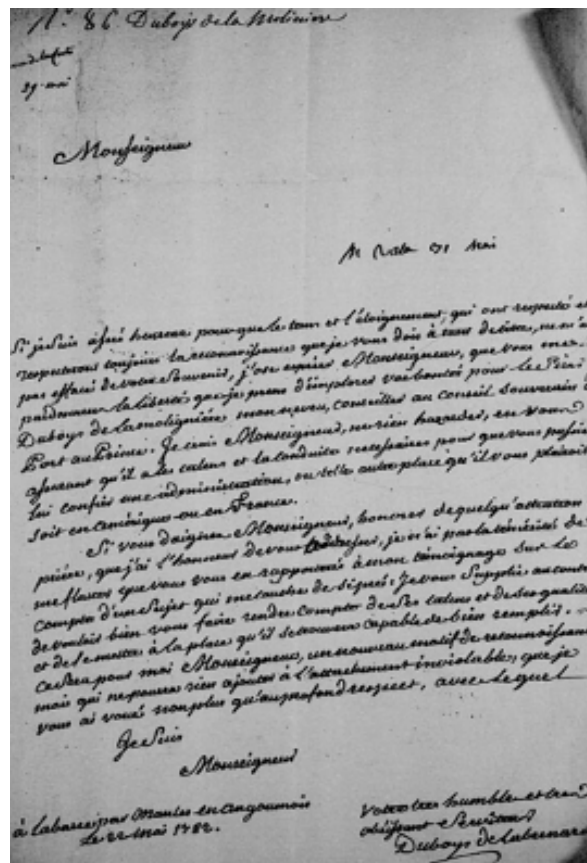 N.º 86. Duboys de la Molinière
29. mai
Monseigneur
31 Mai
Si je suis assés heureux pour que le tems et l'éloignement, qui ont respecté et
respecteront toujours la reconnoissance que je vous dois à tant de titres, ne m'
pas effacé de votre souvenir, j'ose espérer Monseigneur, que vous me
pardonnerez la liberté que je prens d'implorer vos bontés pour le
Duboys de lamolignière mon neveu, conseiller au conseil souverain
Port au Prince. Je crois Monseigneur, ne rien hazarder, en vous
assurant qu'il a les talens et la conduite necessaires pour que vous
lui confier une administration, ou telle autre place qu'il vous plairoit
soit en amérique ou en France.
Si vous daignez Monseigneur, honorer de quelqu'attention
prière, que j'ai l'honneur de vous je n'ai pas la témérité de
me flatter que vous vous en rapporterés à mon témoignage sur le
compte d'un sujet qui me touche de si près. Je vous supplie au cont
de vouloir bien vous faire rendre compte de ses talens et de ses qualit
et de le mettre à la place qu'il se trouvera capable de bien remplir.
ce sera pour moi Monseigneur, un nouveau motif de reconnoissan
mais qui ne pourra rien ajouter à l'attachement inviolable, que je
vous ai voué non plus qu'au profond respect, avec lequel
Je suis
Monseigneur
à par en angoumois
Le 22 Mai 1782.
Votre très humble et très
obéissant Serviteur
Duboys de labernar